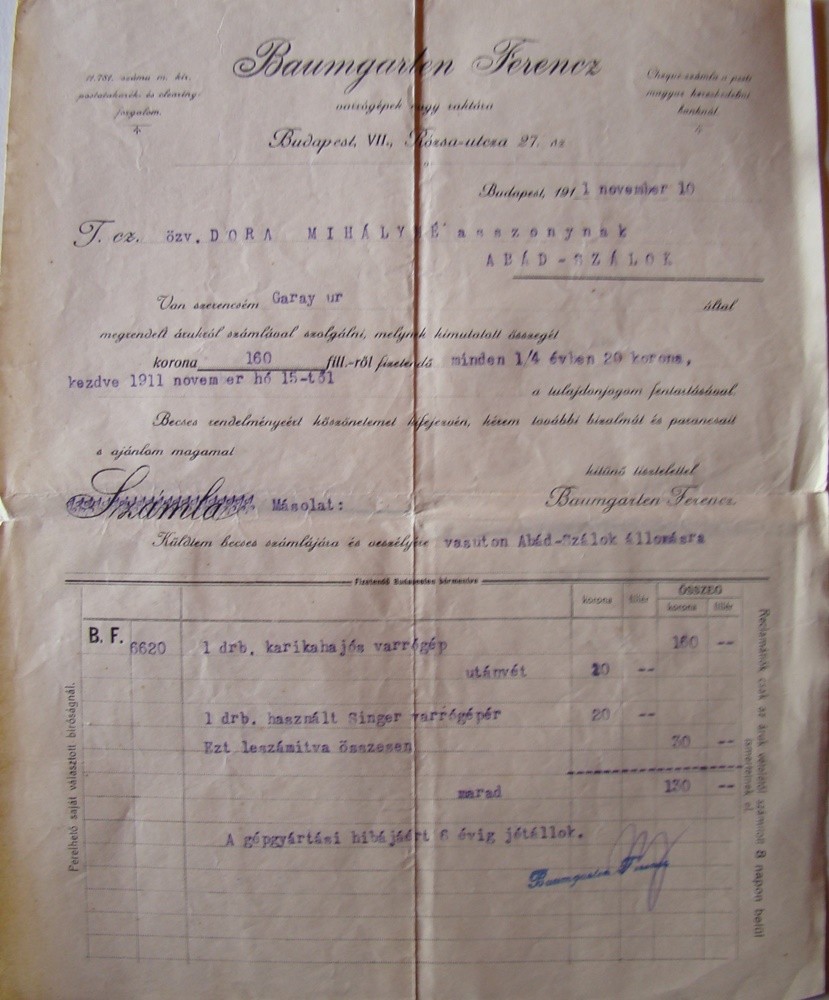 Baumgarten Ferencz
varrógépek nagy raktára
Budapest, VII., Rózsa-utcza 27. sz
11.781. számu m. kir.
postatakarék- és clearing-
forgalom.
Cheque-számla a pesti
magyar kereskedelmi
banknál.
Budapest, 1911 november 10
T. cz. özv. DORA MIHÁLYNÉ asszonynak
ABÁD-SZÁLOK
Van szerencsém Garay ur által
megrendelt árukról számlával szolgálni, melynek kimutatott összegét
korona 160 fill.-ről fizetendő minden 1/4 évben 20 korona,
kezdve 1911 novem er hó 15-től a tulajdonjogom fentartásával.
Becses rendelményeért köszönetemet kifejezvén, kérem további bizalmát és parancsait
s ajánlom magamat
kitünő tisztelettel
Baumgarten Ferencz.
Számla Másolat:
Küldtem becses számlájára és veszélyére vasuton Abád-Szálok állomásra
Fizetendő Budapesten bérmentve
korona fillér ÖSSZEG
korona fillér
B. F. 6620 1 drb. karikahajós varrógép 160 --
utánvét 20 --
1 drb. használt Singer varrógépér 20 --
Ezt leszámitva összesen 30 --
marad 130 --
A gépgyártási hibájáért 6 évig jótállok.
Baumgarten Ferencz
Perelhető saját választott biróságnál.
Reclamatiók csak az áruk vételétől számitott 8 napon belül
ismertetnek el.